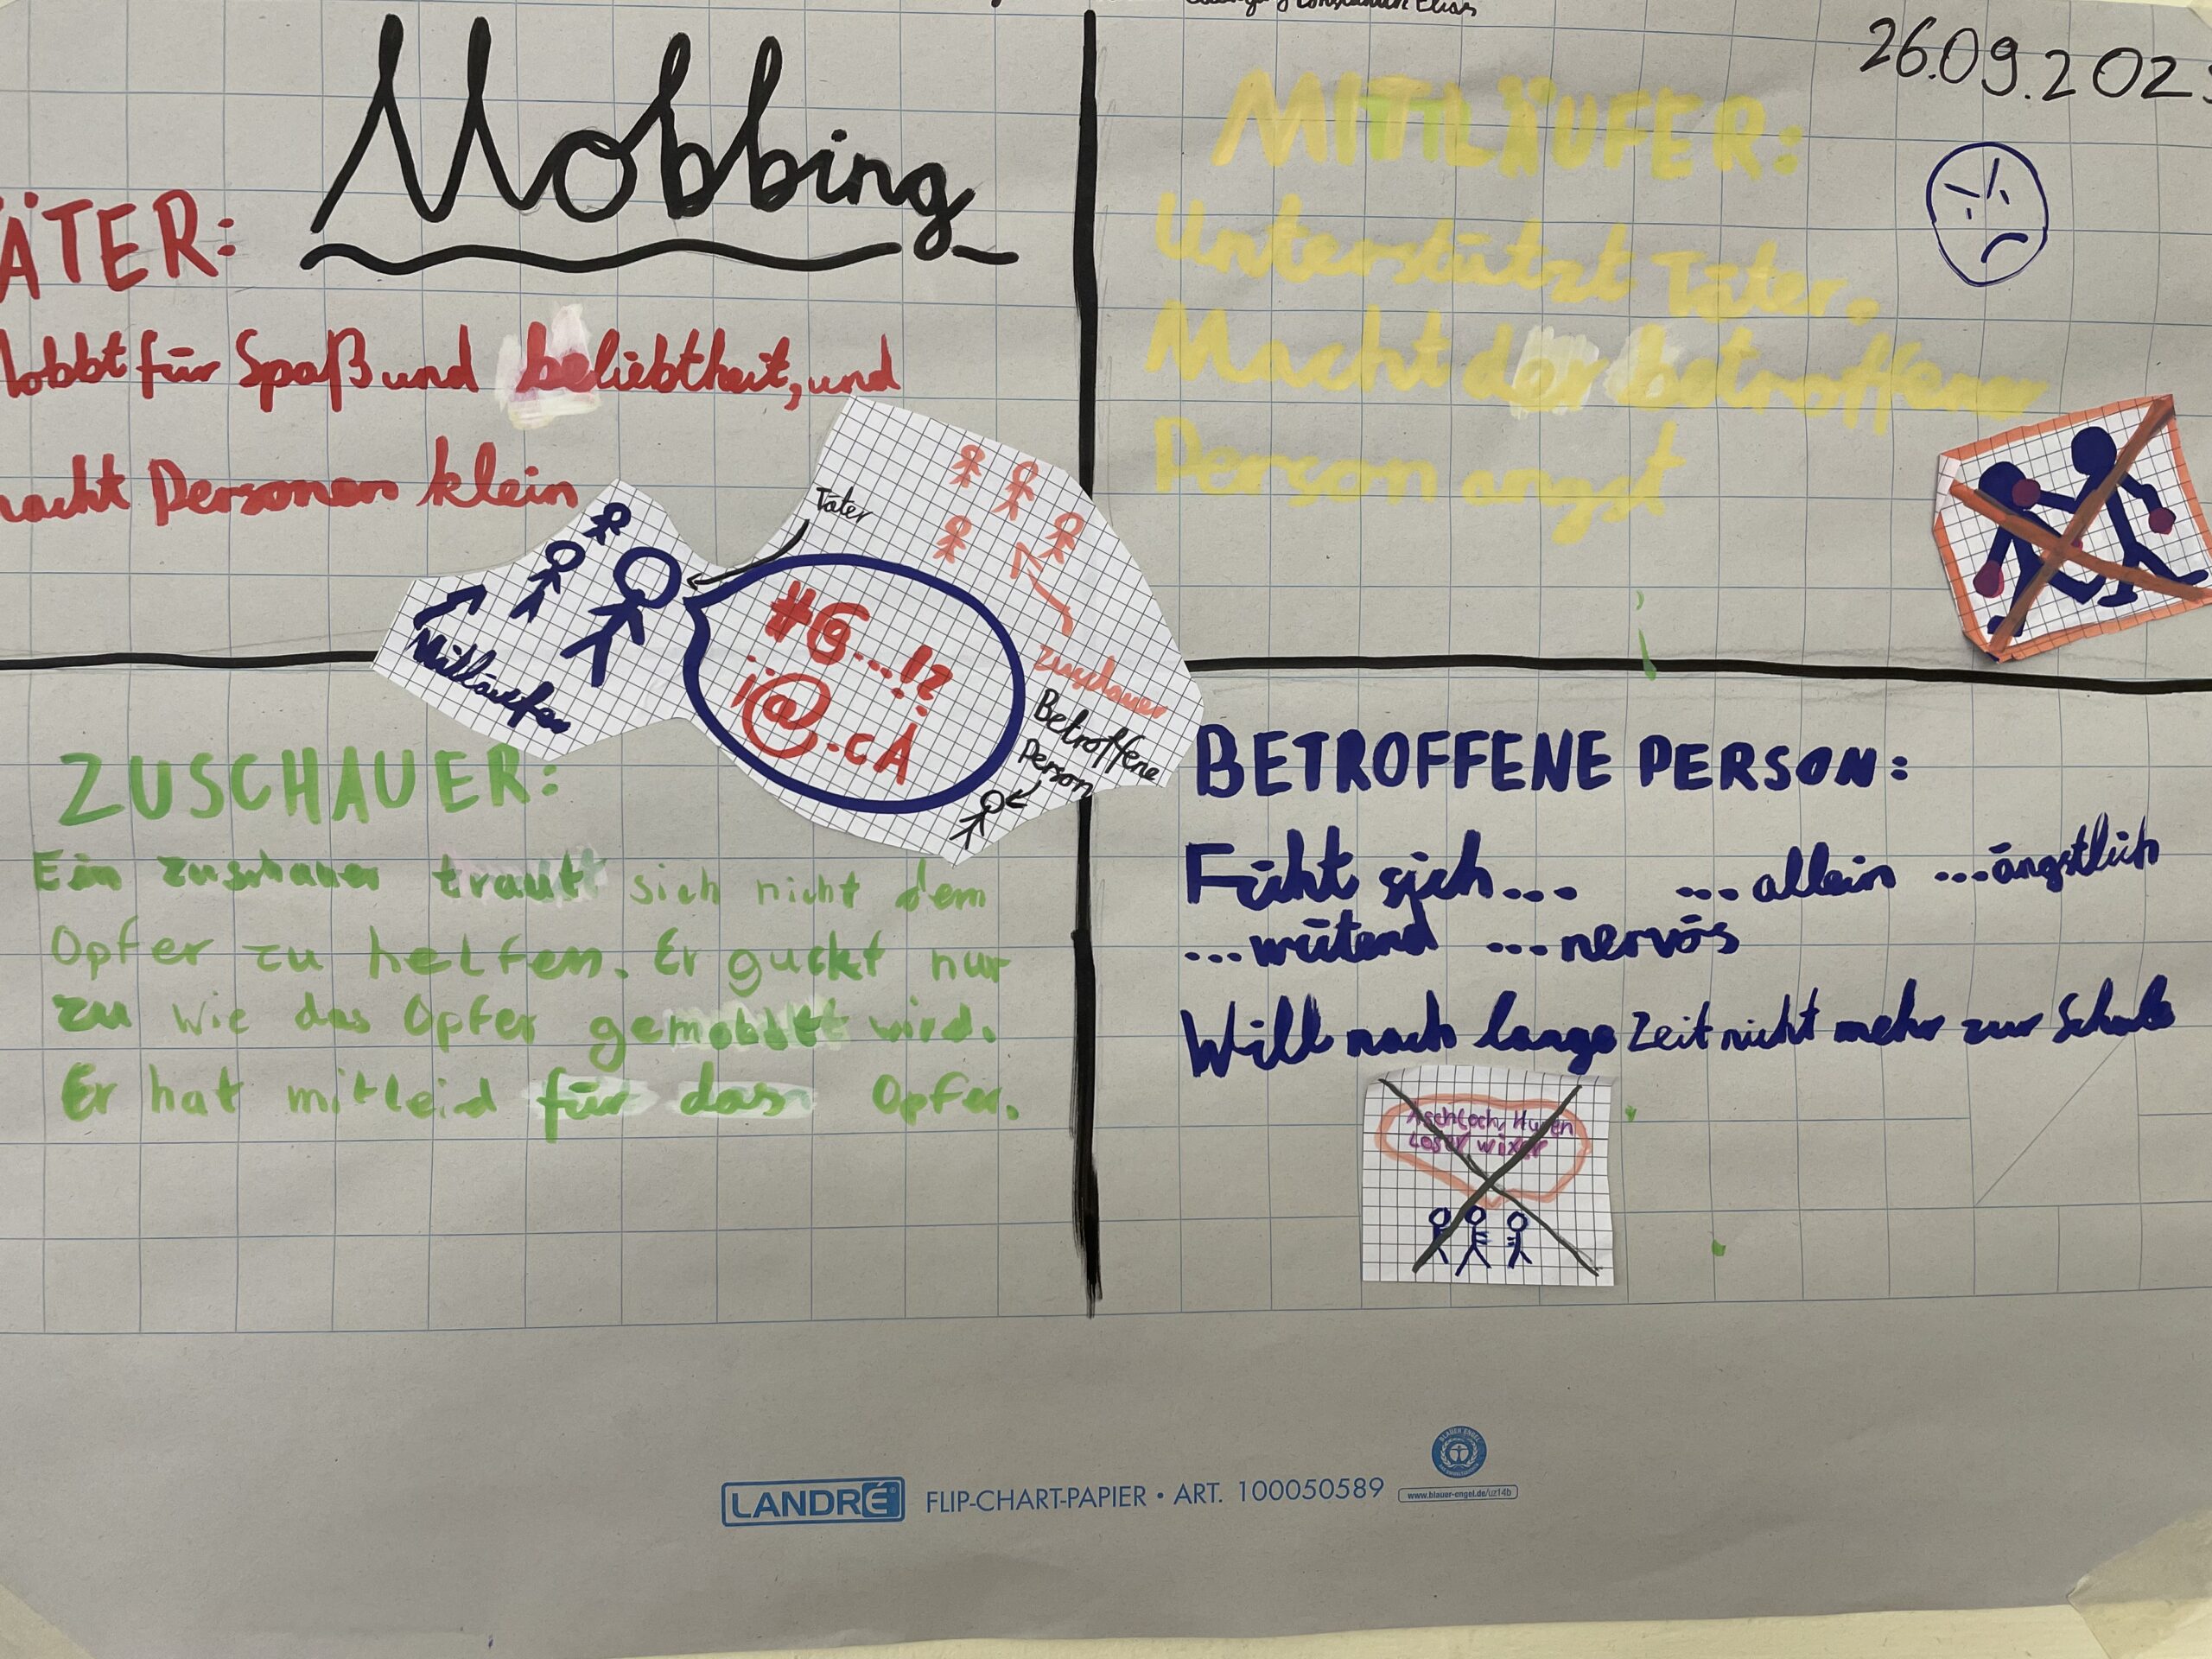 Constantin Elias
26.09.202
Mobbing
ÄTER:
obbt für Spaß und beliebtheit, und
acht Personen klein
MITLÄUFER:
Unterstützt Täter.
Macht der betroffenen
Person angst
Täter
Mitläufer
#@...!?
¡@.cÅ
zuschauer
Betroffene
Person
ZUSCHAUER:
Ein zuschauer traut sich nicht dem
Opfer zu helfen. Er guckt nur
zu wie das Opfer gemobbt wird.
Er hat mitleid für das Opfer.
BETROFFENE PERSON:
Fühlt sich... ...allein ...ängstlich
...wütend ...nervös
Will nach lange Zeit nicht mehr zur Schule
Aschloch, Huren
Loser wixer
LANDRÉ FLIP-CHART-PAPIER • ART. 100050589
BLAUER ENGEL
www.blauer-engel.de/uz14b